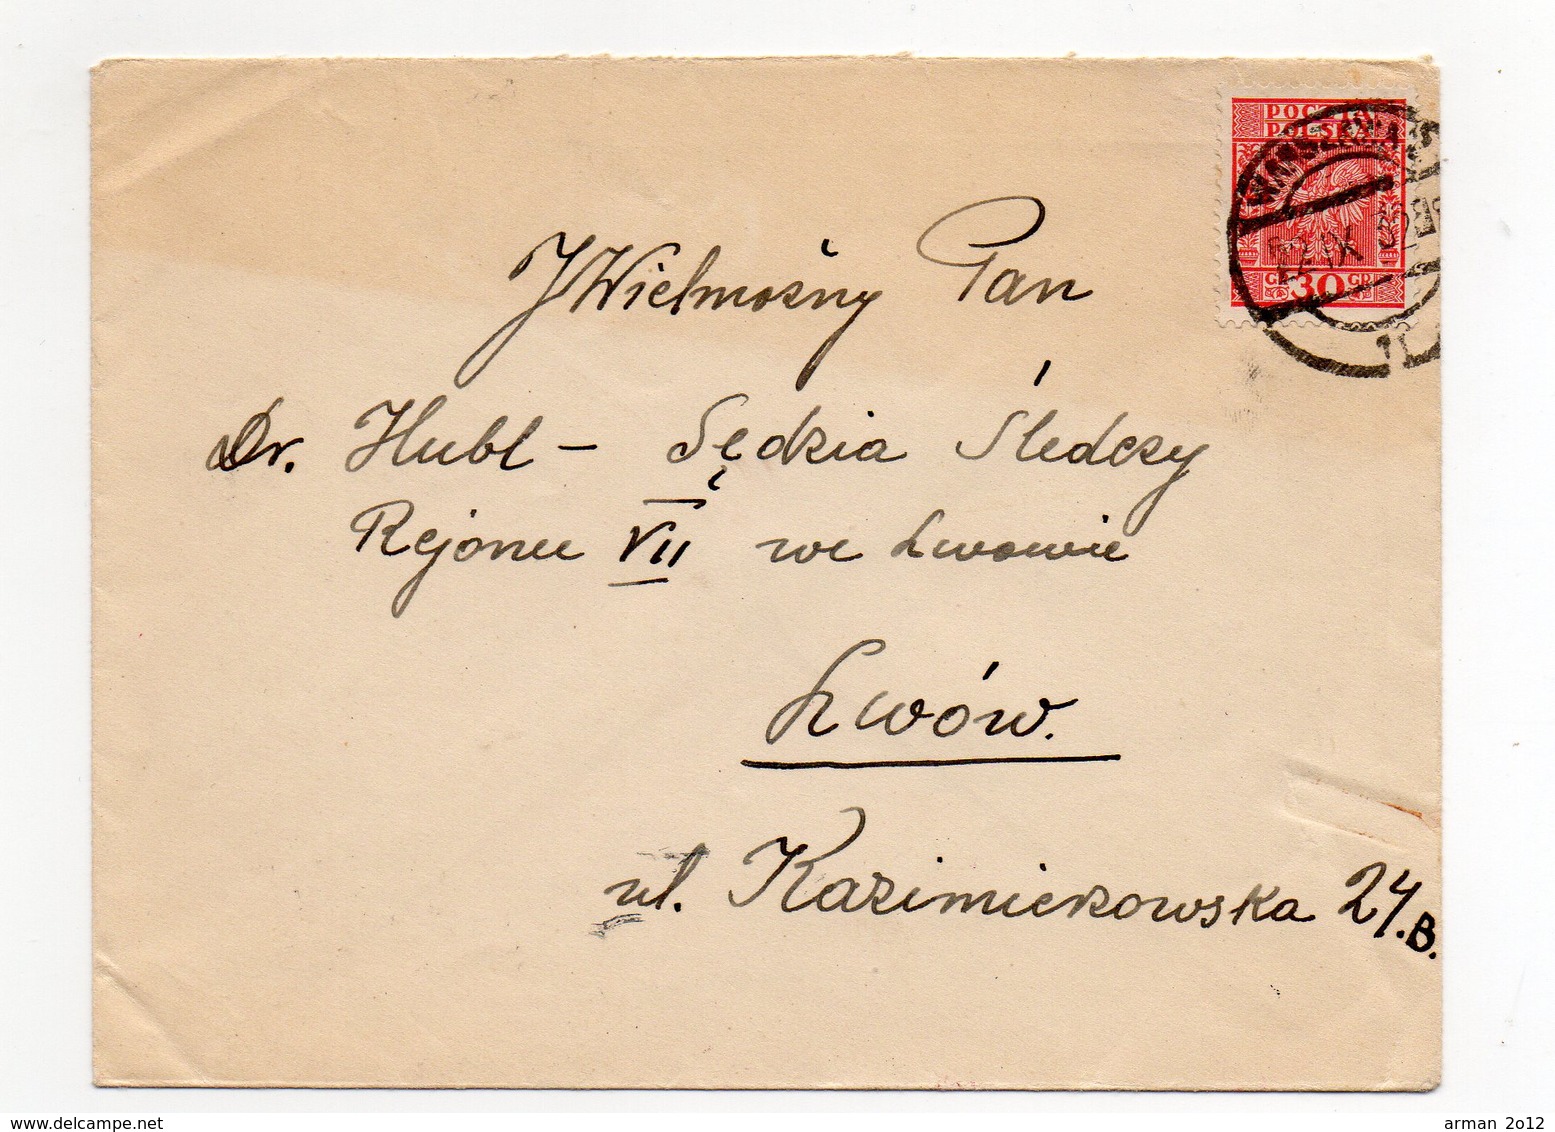 POCZTA
POLSKA
WARSZAWA
22 IX 32
GR 30 GR
JWielmożny Pan
Dr. Hubl - Sędzia Śledczy
Rejonu VII we Lwowie
Lwów.
ul. Kazimierzowska 24.B.
www.delcampe.net
arman 2012